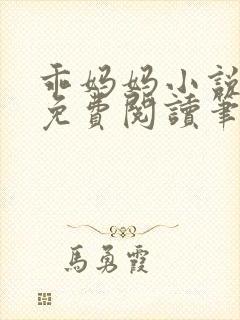 乖妈妈小說
免費閱讀筆
馬勇霞